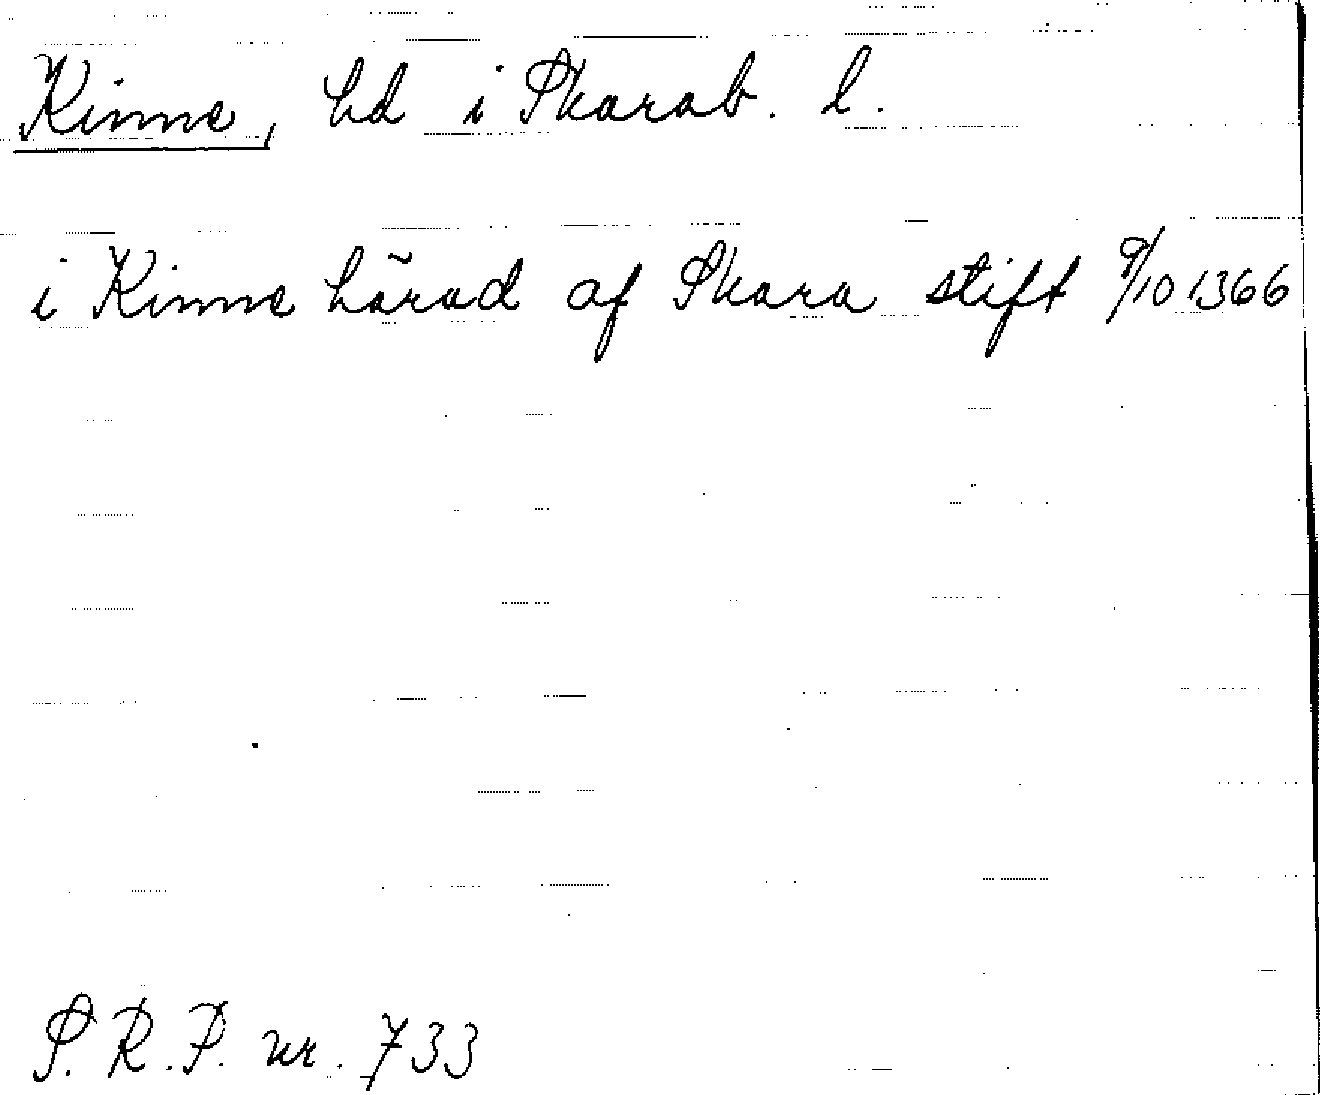 Kinne, hd i Skarab. l.
i Kinne härad af Skara stift 9/10 1366
S.R.P. nr. 733